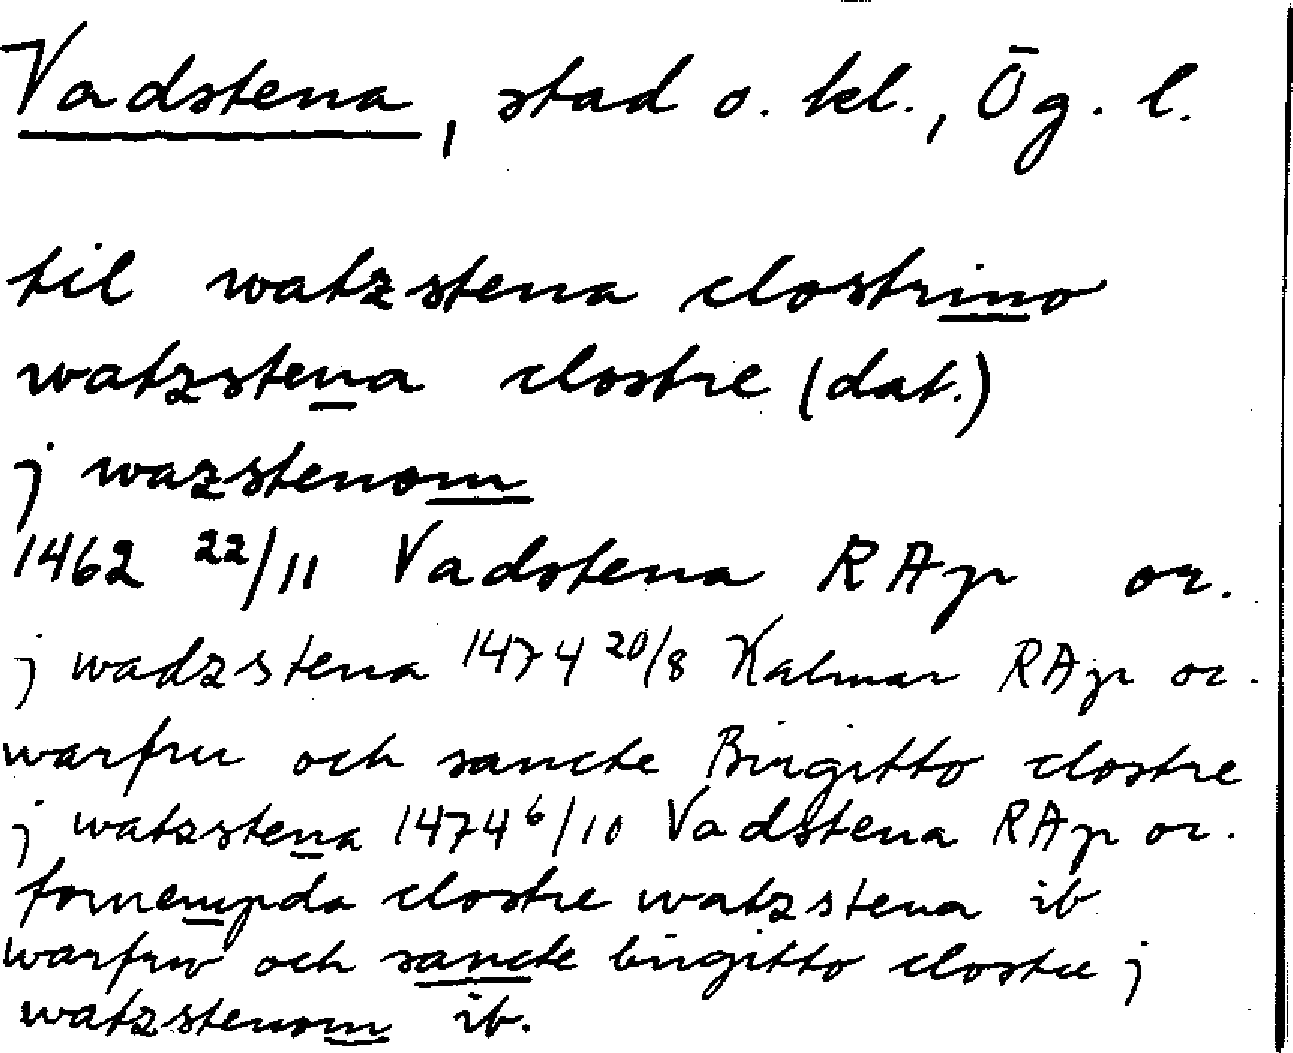 Vadstena, stad o. kl., Ög. l.
til watzstena clostrino
watzstena clostre (dat.)
j wazstenom
1462 22/11 Vadstena RAp or.
j wadzstena 1474 20/8 Kalmar RAp or.
warfru och sancte Birgitto clostre
j watzstena 1474 6/10 Vadstena RAp or.
fornempda clostre watzstena ib
warfrw och sancte birgitto clostre j
watzstenom ib.